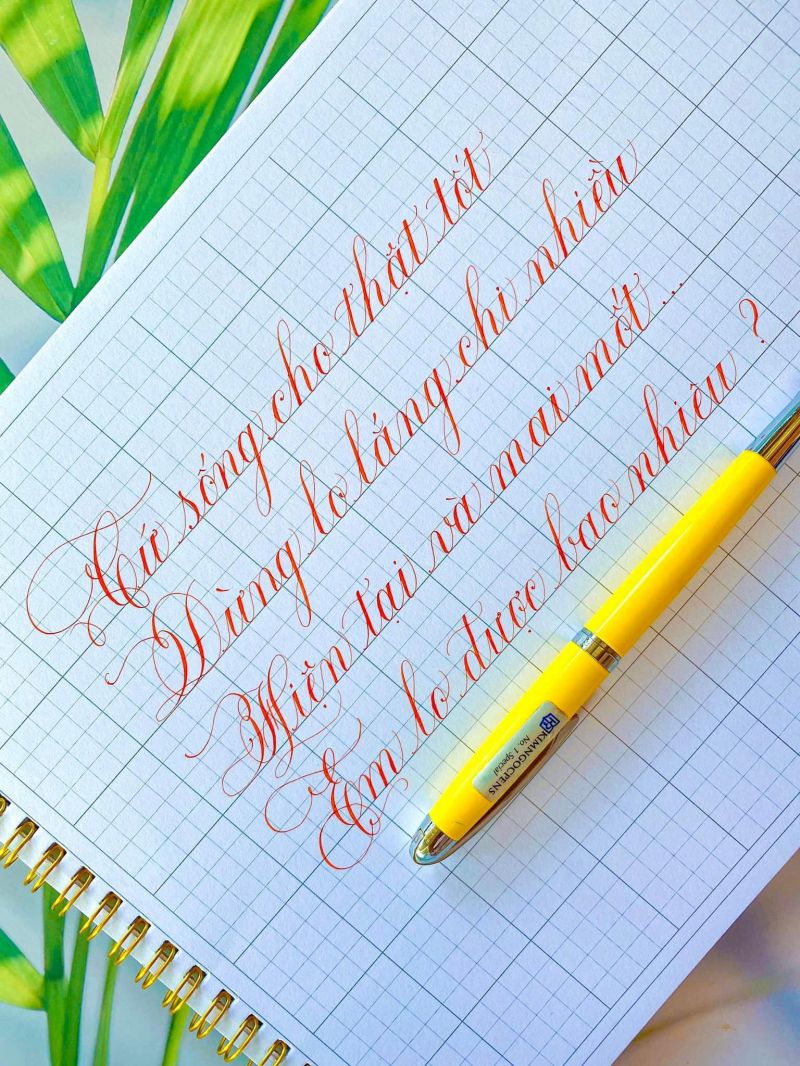 Cứ sống cho thật tốt
Đừng lo lắng chi nhiều
Hiện tại và mai mốt...
Em lo được bao nhiêu?
KIMNGOCPENS
No. 1 Special